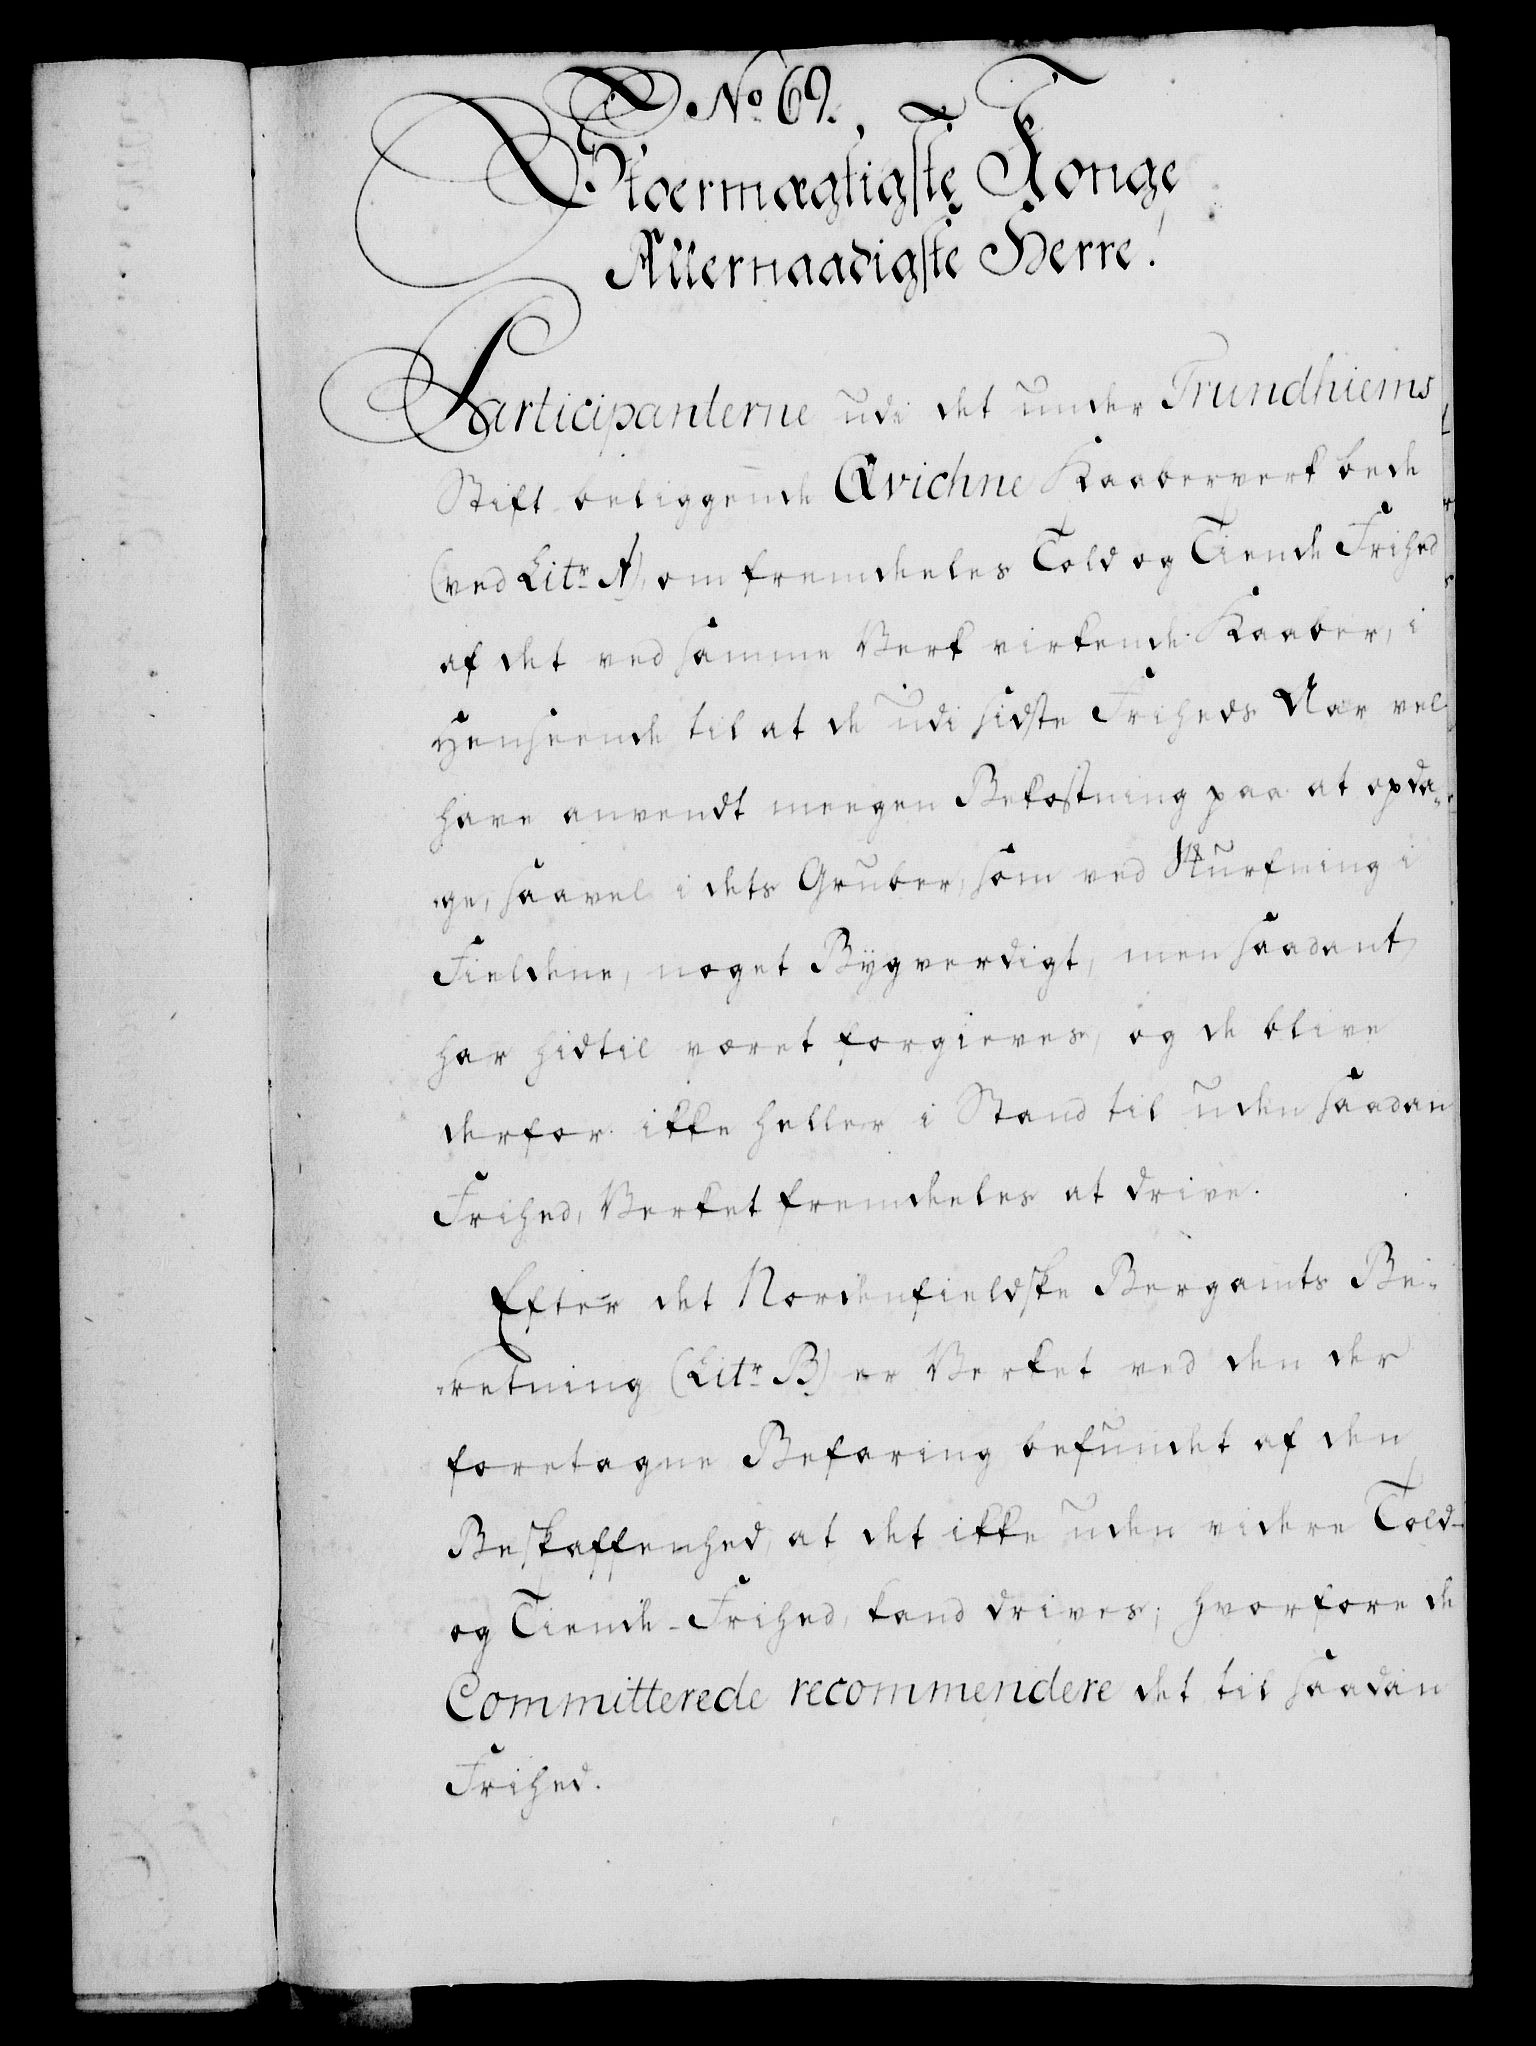 No 69.
Stoermægtigste Konge
Allernaadigste Herre!
Participanterne udi det under Trundhiems
Stift beliggende Qvichne Kaaberverk bede
(ved Litr. A), om fremdeeles Told og Tiende Frihed
af det ved samme Verk virkende Kaaber, i
Henseende til at de udi sidste Friheds Aar vel
have anvendt meegen Bekostning paa at opda-
-ge, saavel i dets Gruber, som ved Skurfning i
Fieldene, noget Bygverdigt, men saadant
har hidtil været forgieves, og de blive
derfor ikke heller i Stand til uden saadan
Frihed, Verket fremdeeles at drive.
Efter det Nordenfieldske Bergamts Be-
-retning (Litr. B) er Verket ved den der
foretagne Befaring befundet af den
Beskaffenhed, at det ikke uden videre Told-
og Tiende-Frihed, kand drives; hvorfore de
Committerede recommendere det til saadan
Frihed.